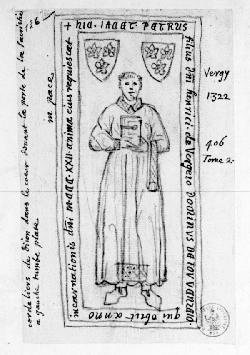 + HIC IACET PETRUS
filius dni henrici de Vergeio dominus
qui obiit anno
incarnationis dni M CCC XXII anima eius requiescat
in pace
Vergy
1322
406
Tome 2.
26
cordeliers de Dijon dans le coeur devant la porte de la sacristie
a gauche tumbe plate